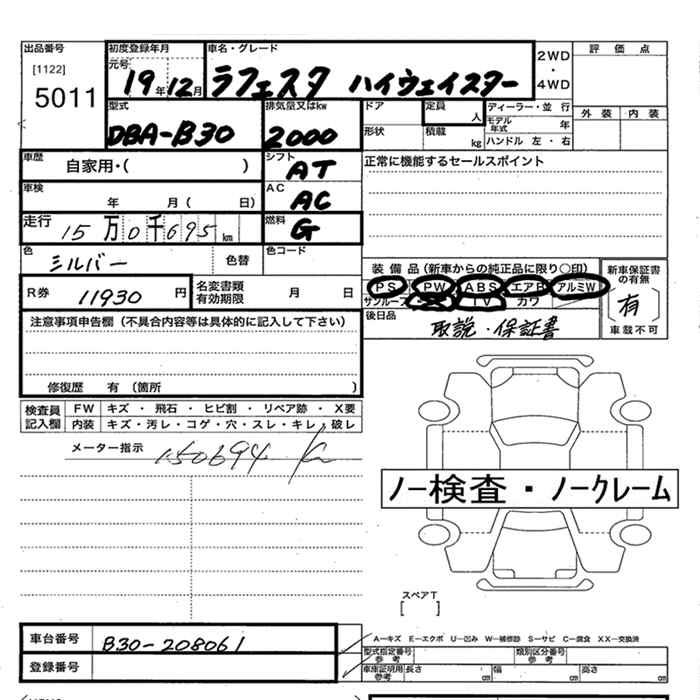 出品番号 初度登録年月 車名・グレード 2WD 評価点
[1122] 元号 ・
5011 19年12月 ラフェスタ ハイウェイスター 4WD
型式 排気量又はkw ドア 定員 人 ディーラー・並行 外装 内装
モデル年式 年
DBA-B30 2000 形状 積載 kg ハンドル 左・右
車歴 自家用・( ) シフト AT 正常に機能するセールスポイント
車検 年 月( 日) AC AC
走行 15万0千695km 燃料 G
色 シルバー 色替 色コード
装備品(新車からの純正品に限り○印) 新車保証書の有無
R券 11930円 名変書類有効期限 月 日 PS PW ABS エアB アルミW
サンルーフ TV カワ 有
注意事項申告欄(不具合内容等は具体的に記入して下さい) 後日品 取説・保証書 車載不可
修復歴 有(箇所 )
検査員記入欄 FW キズ・飛石・ヒビ割・リペア跡・X要
内装 キズ・汚レ・コゲ・穴・スレ・キレ・破レ
メーター指示 150694
ノー検査・ノークレーム
スペアT
[ ]
車台番号 B30-208061 A-キズ E-エクボ U-凹み W-補修跡 S-サビ C-腐食 XX-交換済
型式指定番号 参考 類別区分番号 参考
登録番号 車庫証明用 参考 長さ cm 幅 cm 高さ cm